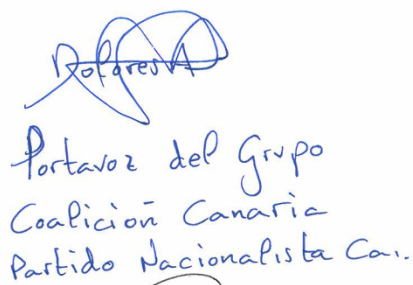 Dolores
Portavoz del Grupo
Coalición Canaria
Partido Nacionalista Ca..